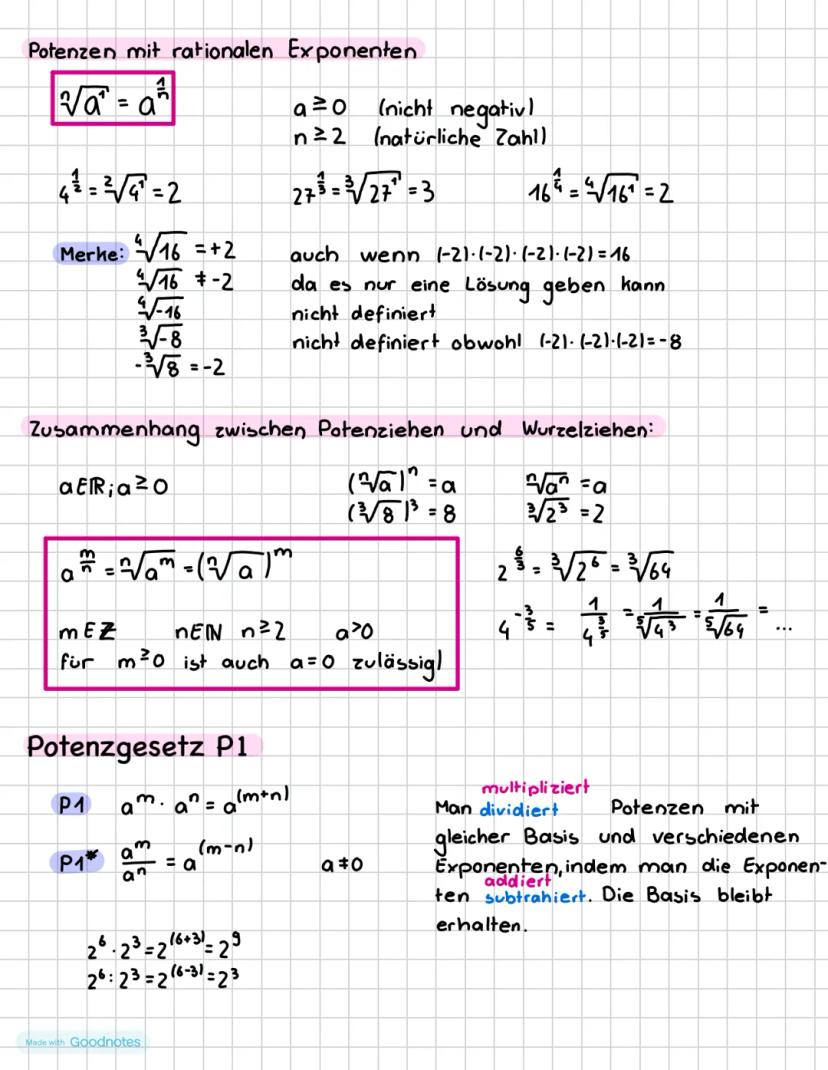 Potenzen mit rationalen Exponenten
ⁿ√a¹ = a^(1/n)
a ≥ 0 (nicht negativ)
n ≥ 2 (natürliche Zahl)
4^(1/2) = ²√4¹ = 2 27^(1/3) = ³√27¹ = 3 16^(1/4) = ⁴√16¹ = 2
Merke: ⁴√16 = +2 auch wenn (-2)·(-2)·(-2)·(-2) = 16
⁴√16 ≠ -2 da es nur eine Lösung geben kann
⁴√-16 nicht definiert
³√-8 nicht definiert obwohl (-2)·(-2)·(-2) = -8
-³√8 = -2
Zusammenhang zwischen Potenziehen und Wurzelziehen:
a∈ℝ; a ≥ 0 (ⁿ√a)ⁿ = a ⁿ√aⁿ = a
(³√8)³ = 8 ³√2³ = 2
a^(m/n) = ⁿ√a^m = (ⁿ√a)^m
m∈ℤ n∈ℕ n ≥ 2 a > 0
für m ≥ 0 ist auch a = 0 zulässig!
2^(6/3) = ³√2⁶ = ³√64
4^(-3/5) = 1/4^(3/5) = 1/⁵√4³ = 1/⁵√64 = ...
Potenzgesetz P1
P1 a^m · a^n = a^(m+n)
P1* a^m/a^n = a^(m-n) a ≠ 0
2⁶ · 2³ = 2^(6+3) = 2⁹
2⁶ : 2³ = 2^(6-3) = 2³
multipliziert
Man dividiert Potenzen mit
gleicher Basis und verschiedenen
Exponenten, indem man die Exponen-
addiert
ten subtrahiert. Die Basis bleibt
erhalten.
Made with Goodnotes